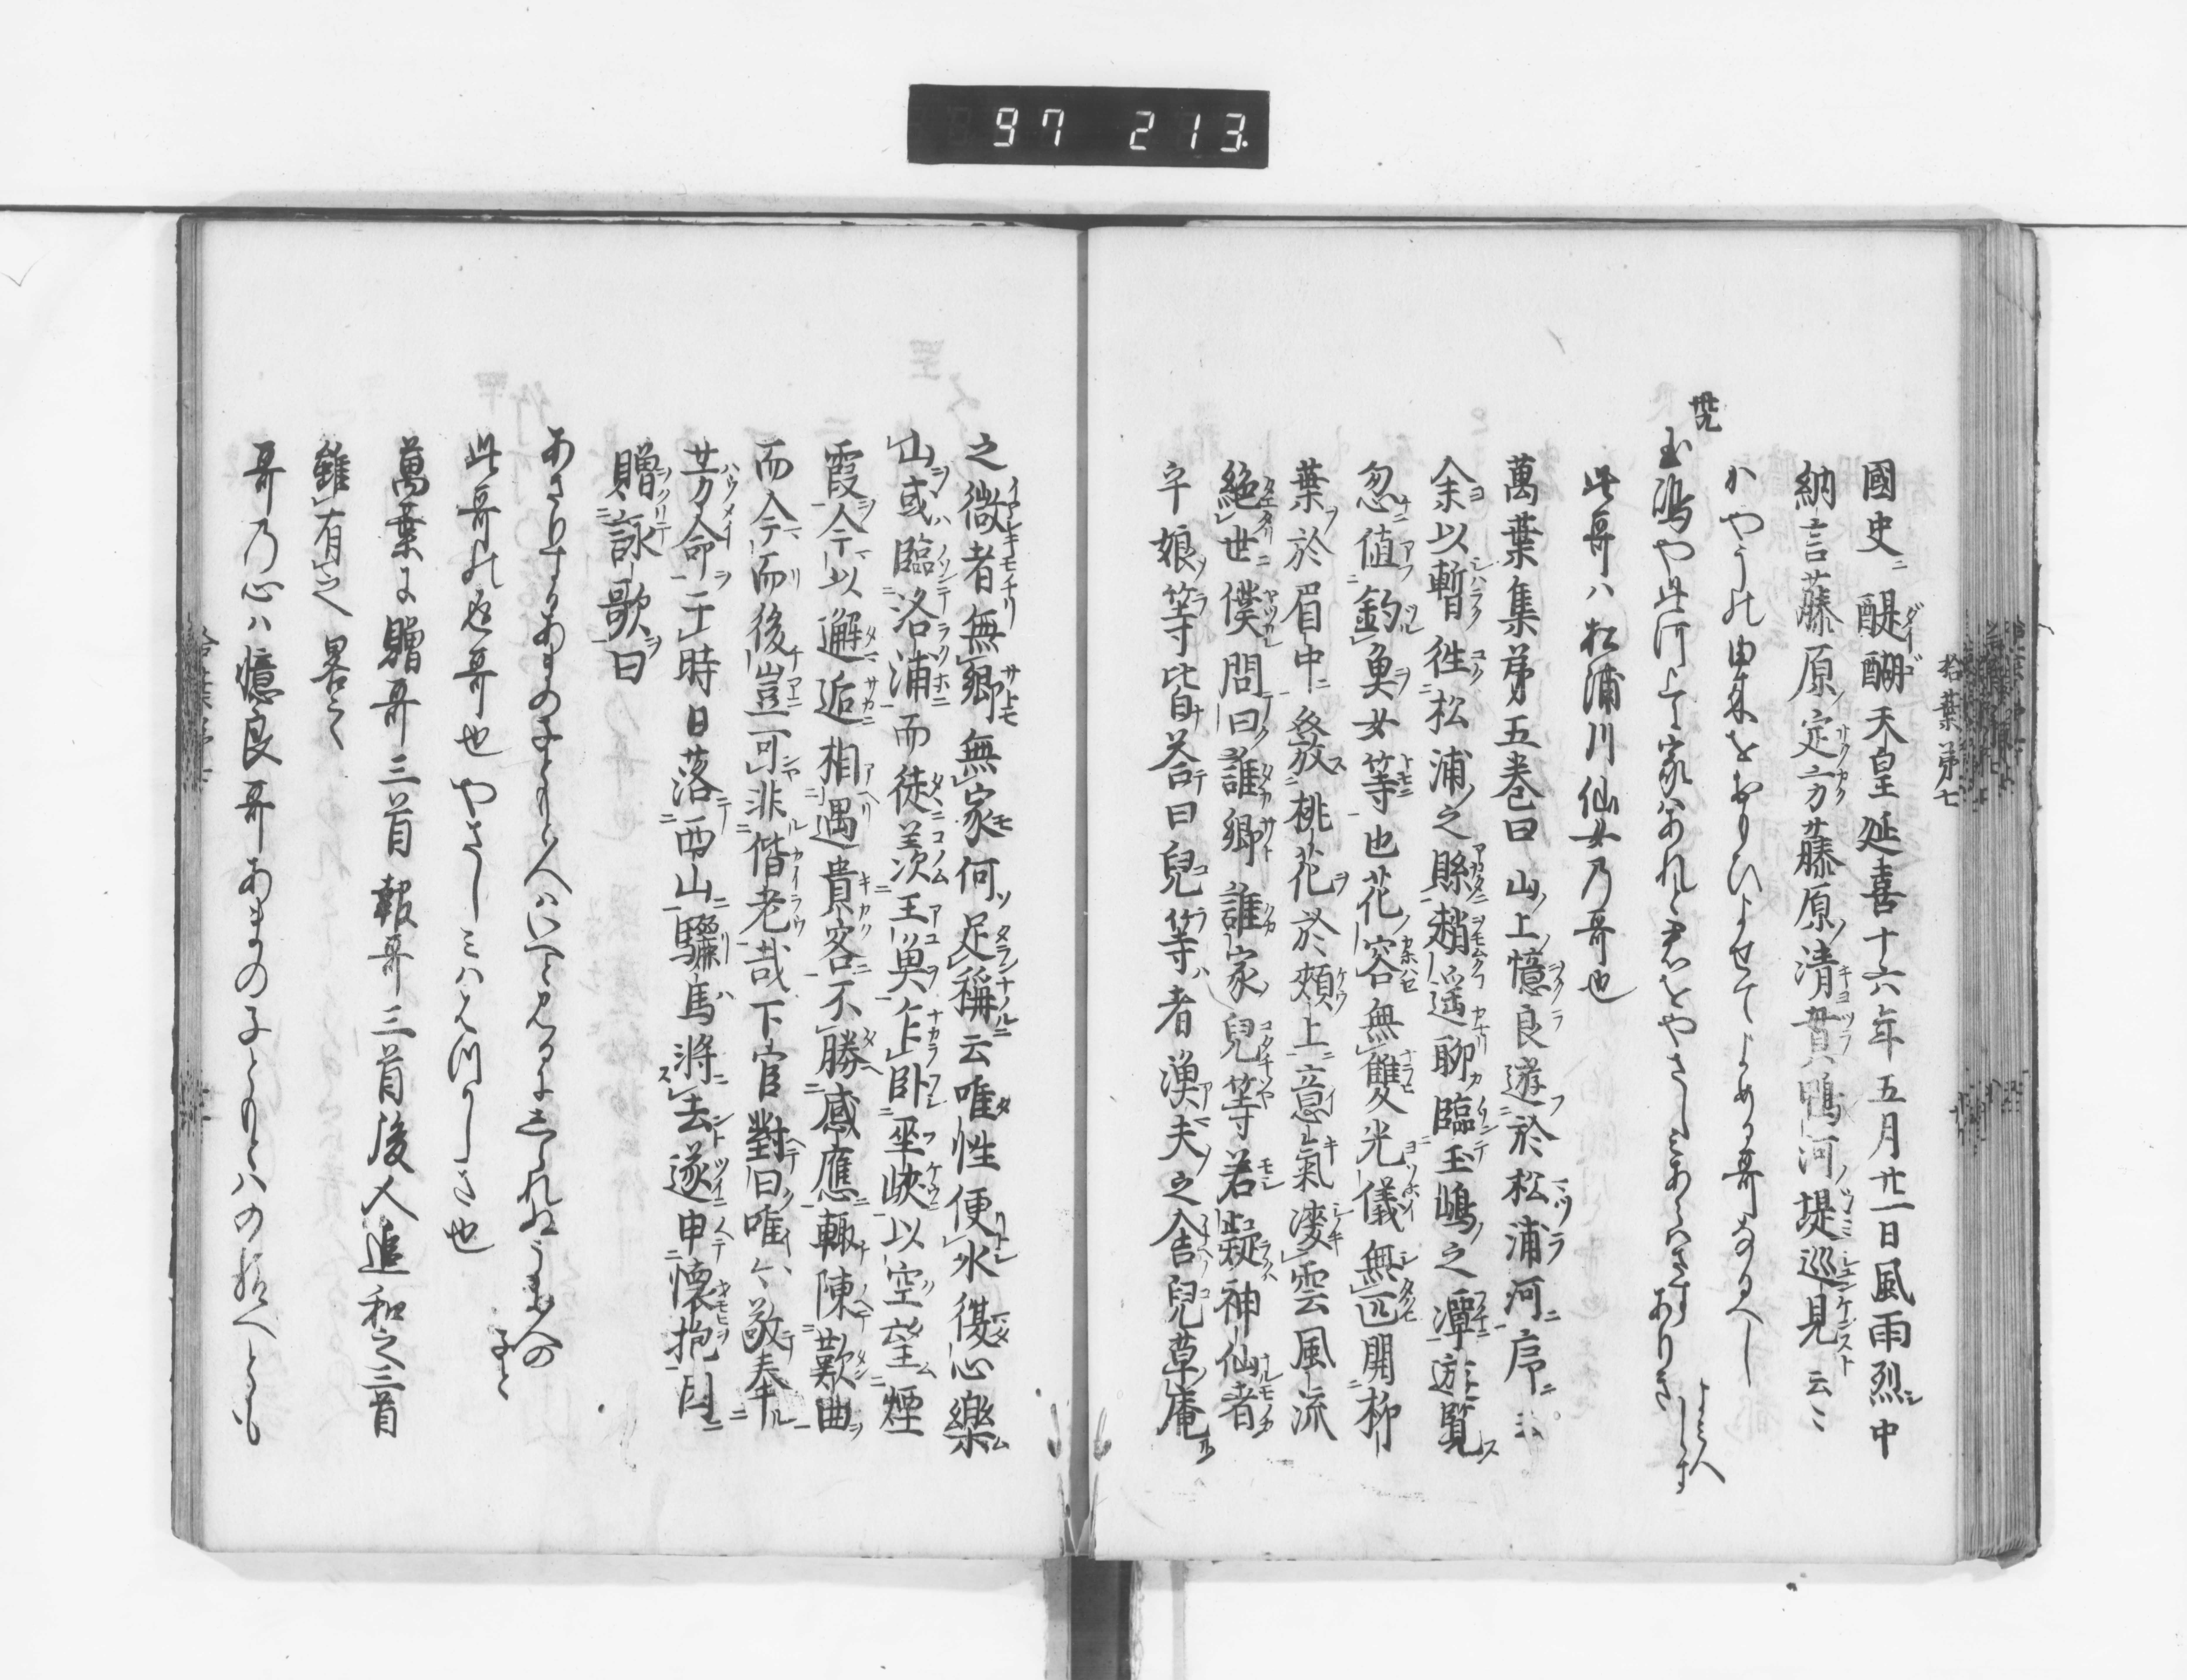 97 213.
拾葉第七
國史ニ醍醐天皇延喜十六年五月廿一日風雨烈シ中
納言藤原定方藤原清貫鴨河堤巡見云ミ
かやうの由来をおもひよせてよめる哥なるへし
玉嶋や此河上に家はあれと君をやさしミあらハさすありき
よミ人しらす
此哥ハ松浦川仙女乃哥也
萬葉集第五巻曰山上憶良遊於松浦河序ニ云
余以暫徃松浦之縣趙遥聊臨玉嶋之潭遊覧
忽値釣魚女等也花容無雙光儀無匹開柳
葉於眉中發桃花於頰上意氣凌雲風流
絶世僕問曰誰郷誰家兒等若疑神仙者
乎娘等皆荅曰兒等者漁夫之舎兒草庵
之微者無郷無家何足稱云唯性便水復心樂
山或臨洛浦而徒羨王魚乍卧巫峽以空望煙
霞今以邂逅相遇貴客不勝感應輙陳歎曲
而今而後豈可非偕老哉下官對曰唯〻敬奉
芳命于時日落西山驪馬將去遂申懐抱因
贈詠歌曰
あさりするあまの子ともと人ハいへと見るにしられぬうま人の
子と
此哥の返哥也やさしミハはつかしき也
萬葉に贈哥三首報哥三首後人追和之三首
雖有之畧之
哥乃心ハ憶良哥あまの子ともとハの給へとも